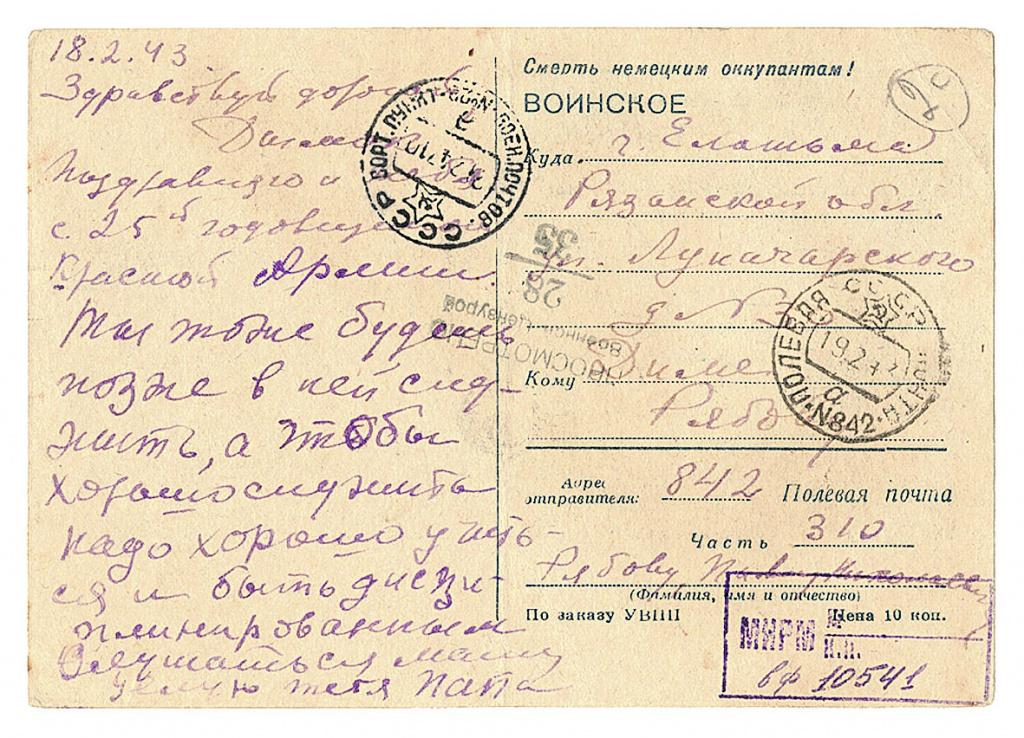 18.2.43
Здравствуй дорогой
Поздравляю и тебя
с 25й годовщиной
Красной Армии.
Ты тоже будешь
позже в ней слу-
жить, а чтобы
хорошо служить
надо хорошо учить-
ся и быть дисци-
плинированным
Слушаться маму
целую тебя папа
Смерть немецким оккупантам!
ВОИНСКОЕ
Куда г. Елатьма
Рязанской обл.
ул. Луначарского
д № 3
Кому Диме
Адрес
отправителя: 842 Полевая почта
Часть 310
Рябову
(Фамилия, имя и отчество)
По заказу УВПП Цена 10 коп.
СССР
ПОЛЕВАЯ ПОЧТА
19.2.43
а
N842
СССР
ПРОСМОТРЕНО
Военной Цензурой
28
35
МИРМ
вф 10541